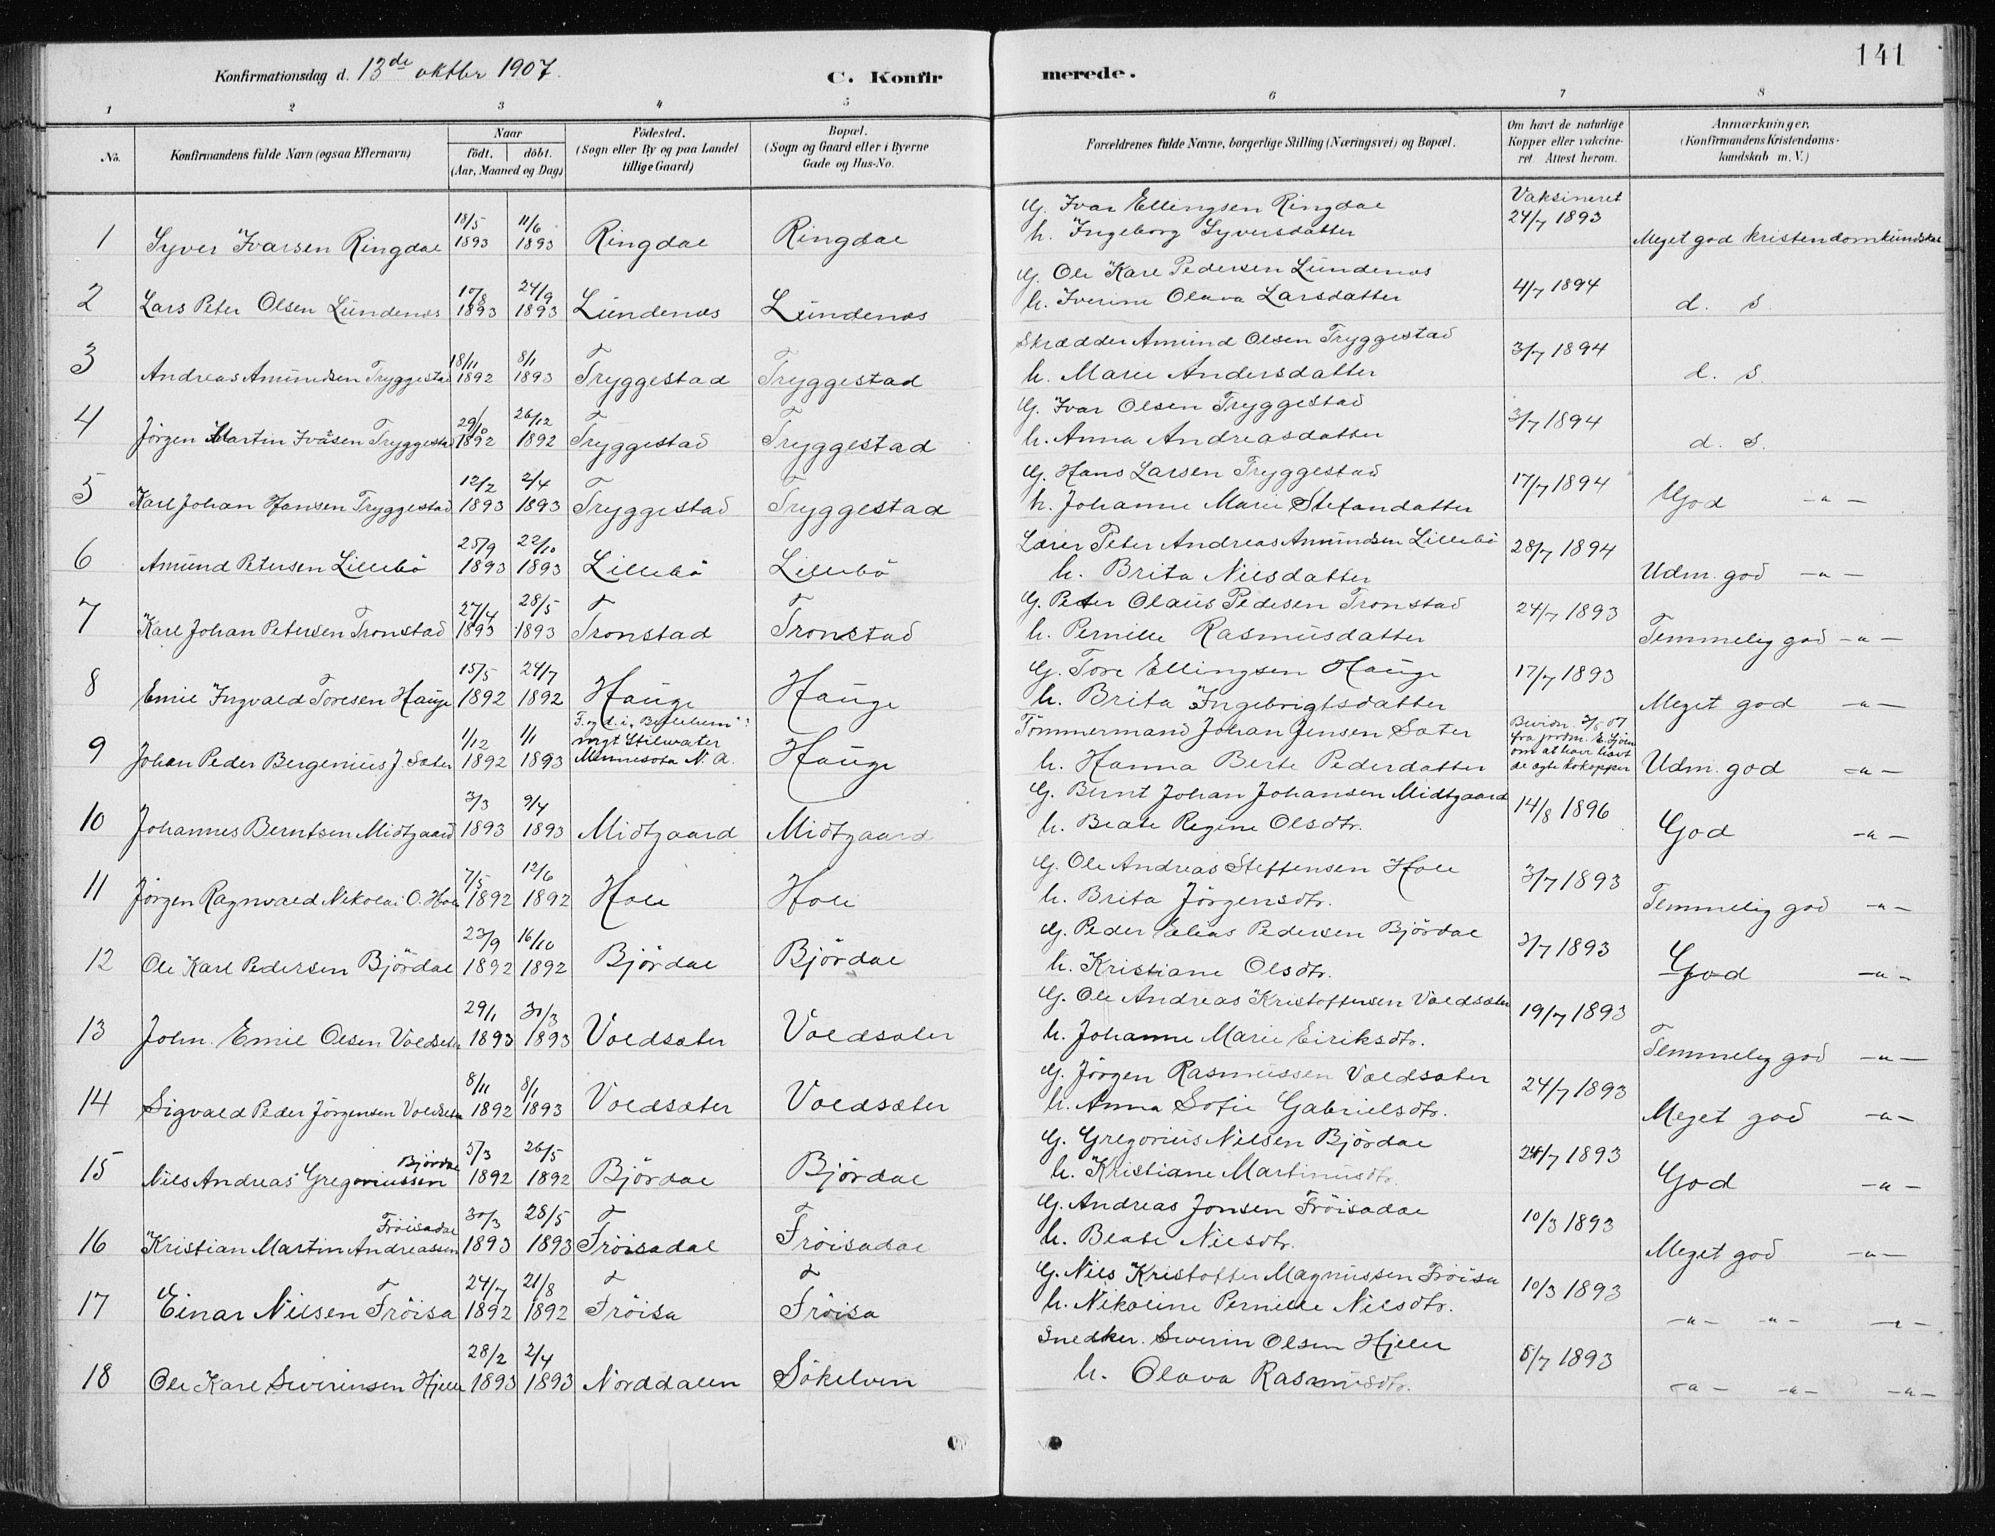 141
Konfirmationsdag d. 13de oktbr 1907.
C. Konfirmerede.
1 2 3 4 5 6 7 8
No.
Konfirmandens fulde Navn (ogsaa Efternavn)
Naar
födt. döbt.
(Aar, Maaned og Dag)
Födested.
(Sogn eller By og paa Landet
tillige Gaard)
Bopæl.
(Sogn og Gaard eller i Byerne
Gade og Hus-No.
Forældrenes fulde Navne, borgerlige Stilling (Næringsvei) og Bopæl.
Om havt de naturlige
Kopper eller vakcine-
ret. Attest herom.
Anmærkninger.
(Konfirmandens Kristendoms-
kundskab m. V.)
1 Syver Ivarsen Ringdal 18/5 1893 11/6 1893 Ringdal Ringdal
G. Ivar Ellingsen Ringdal
h. Ingeborg Syversdatter
Vaksineret
24/7 1893
Meget god kristendomkundskab
2 Lars Peter Olsen Lundenes 10/8 1893 24/9 1893 Lundenes Lundenes
G. Ole Karl Pedersen Lundenes
h. Iverine Olava Larsdatter
4/7 1894
d. s.
3 Andreas Amundsen Tryggestad 18/11 1892 8/1 1893 Tryggestad Tryggestad
Skrædder Amund Olsen Tryggestad
h. Marie Andersdatter
3/7 1894
d. s.
4 Jørgen Martin Ivasen Tryggestad 29/10 1892 26/12 1892 Tryggestad Tryggestad
G. Ivar Olsen Tryggestad
h. Anna Andreasdatter
3/7 1894
d. s.
5 Karl Johan Hansen Tryggestad 12/2 1893 2/4 1893 Tryggestad Tryggestad
G. Hans Larsen Tryggestad
h. Johanne Marie Stefandatter
17/7 1894
God -"-
6 Amund Petersen Lillebö 25/9 1893 22/10 1893 Lillebö Lillebö
Lærer Peter Andreas Amundsen Lillebö
h. Brita Nilsdatter
28/7 1894
Udm. god -"-
7 Karl Johan Petersen Tronstad 27/4 1893 28/5 1893 Tronstad Tronstad
G. Peter Olaus Pedesen Tronstad
h. Pernille Rasmusdatter
24/7 1893
Temmelig god -"-
8 Emil Ingvald Toresen Hauge 15/5 1892 24/7 1892 Hauge Hauge
G. Tore Ellingsen Hauge
h. Brita Ingebrigtsdatter
17/7 1893
Meget god -"-
9 Johan Peder Bergenius J. Sæter 1/12 1892 1/1 1893
F. og d. i "Bethlehem"
mgt Stilwater
Mennesota N. A.
Hauge
Tömmermand Johan Jensen Sæter
h. Hanna Berte Pedersdatter
om at have havt
de ægte kokopper
Udm. god -"-
10 Johannes Berntsen Midtgaard 3/3 1893 9/4 1893 Midtgaard Midtgaard
G. Bernt Johan Johansen Midtgaard
h. Beate Regine Olsdtr.
14/8 1896
God -"-
11 Jørgen Ragnvald Nikolai O. Hole 7/5 1892 12/6 1892 Hole Hole
G. Ole Andreas Steffensen Hole
h. Brita Jörgensdtr.
3/7 1893
Temmelig god -"-
12 Ole Karl Pedersen Björdal 23/9 1892 16/10 1892 Björdal Björdal
G. Peder Elias Pedersen Björdal
h. Kristiane Olsdtr.
3/7 1893
God -"-
13 John Emil Olsen Voldsæter 29/1 1893 30/3 1893 Voldsæter Voldsæter
G. Ole Andreas Kristoffersen Voldsæter
h. Johanne Marie Eiriksdtr.
19/7 1893
Temmelig god -"-
14 Sigvald Peder Jörgensen Voldsæter 8/11 1892 8/1 1893 Voldsæter Voldsæter
G. Jörgen Rasmussen Voldsæter
h. Anna Sofie Gabrielsdtr.
24/7 1893
Meget god -"-
15 Nils Andreas Gregoriussen Björdal 5/3 1892 26/5 1892 Björdal Björdal
G. Gregorius Nilsen Björdal
h. Kristiane Martinusdtr.
24/7 1893
God -"-
16 Kristian Martin Andreassen Fröisadal 30/3 1893 28/5 1893 Fröisadal Fröisadal
G. Andreas Jonsen Fröisadal
h. Beate Nilsdtr.
10/3 1893
Meget god -"-
17 Einar Nilsen Fröisa 24/7 1892 21/8 1892 Fröisa Fröisa
G. Nils Kristoffer Magnussen Fröisa
h. Nikoline Pernille Nilsdtr.
10/3 1893
-"- -"- -"-
18 Ole Karl Severinsen Hjelle 28/2 1893 2/4 1893 Norddalen Sökelven
Snedker Severin Olsen Hjelle
h. Olava Rasmusdtr.
5/7 1893
-"- -"- -"-